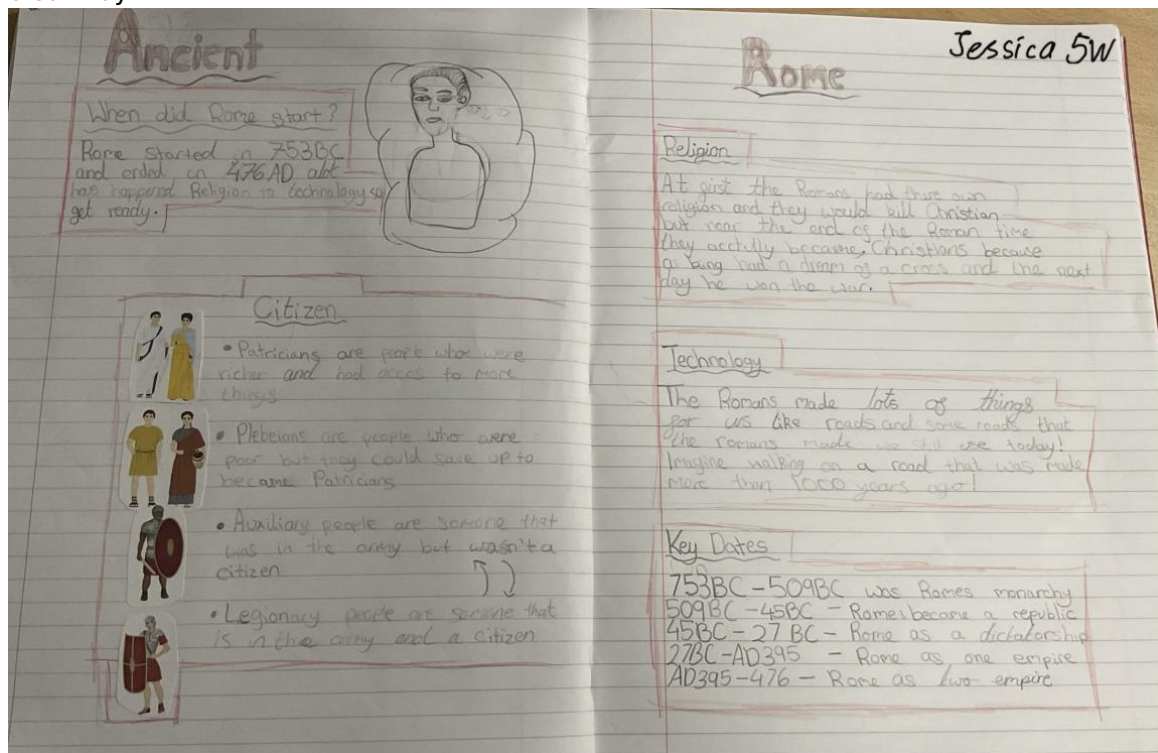 Ancient
When did Rome start?
Rome started in 753BC
and ended in 476AD alot
has happened Religion to technology so
get ready.
Citizen
• Patricians are people who were
richer and had acces to more
things
• Plebeians are people who were
poor but they could save up to
became Patricians
• Auxiliary people are somone that
was in the army but wasn't a
citizen
• Legionary people are somone that
is in the army and a citizen
Rome
Jessica 5W
Religion
At first the Romans had there own
religion and they would kill Christian
but near the end of the Roman time
they acctully became Christians because
a king had a dream of a cross and the next
day he won the war.
Technology
The Romans made lots of things
for us like roads and some roads that
the romans made we still use today!
Imagine walking on a road that was made
more than 1000 years ago!
Key Dates
753BC-509BC was Romes monarchy
509BC-45BC - Romes became a republic
45BC-27BC - Rome as a dictatorship
27BC-AD395 - Rome as one empire
AD395-476 - Rome as two empire